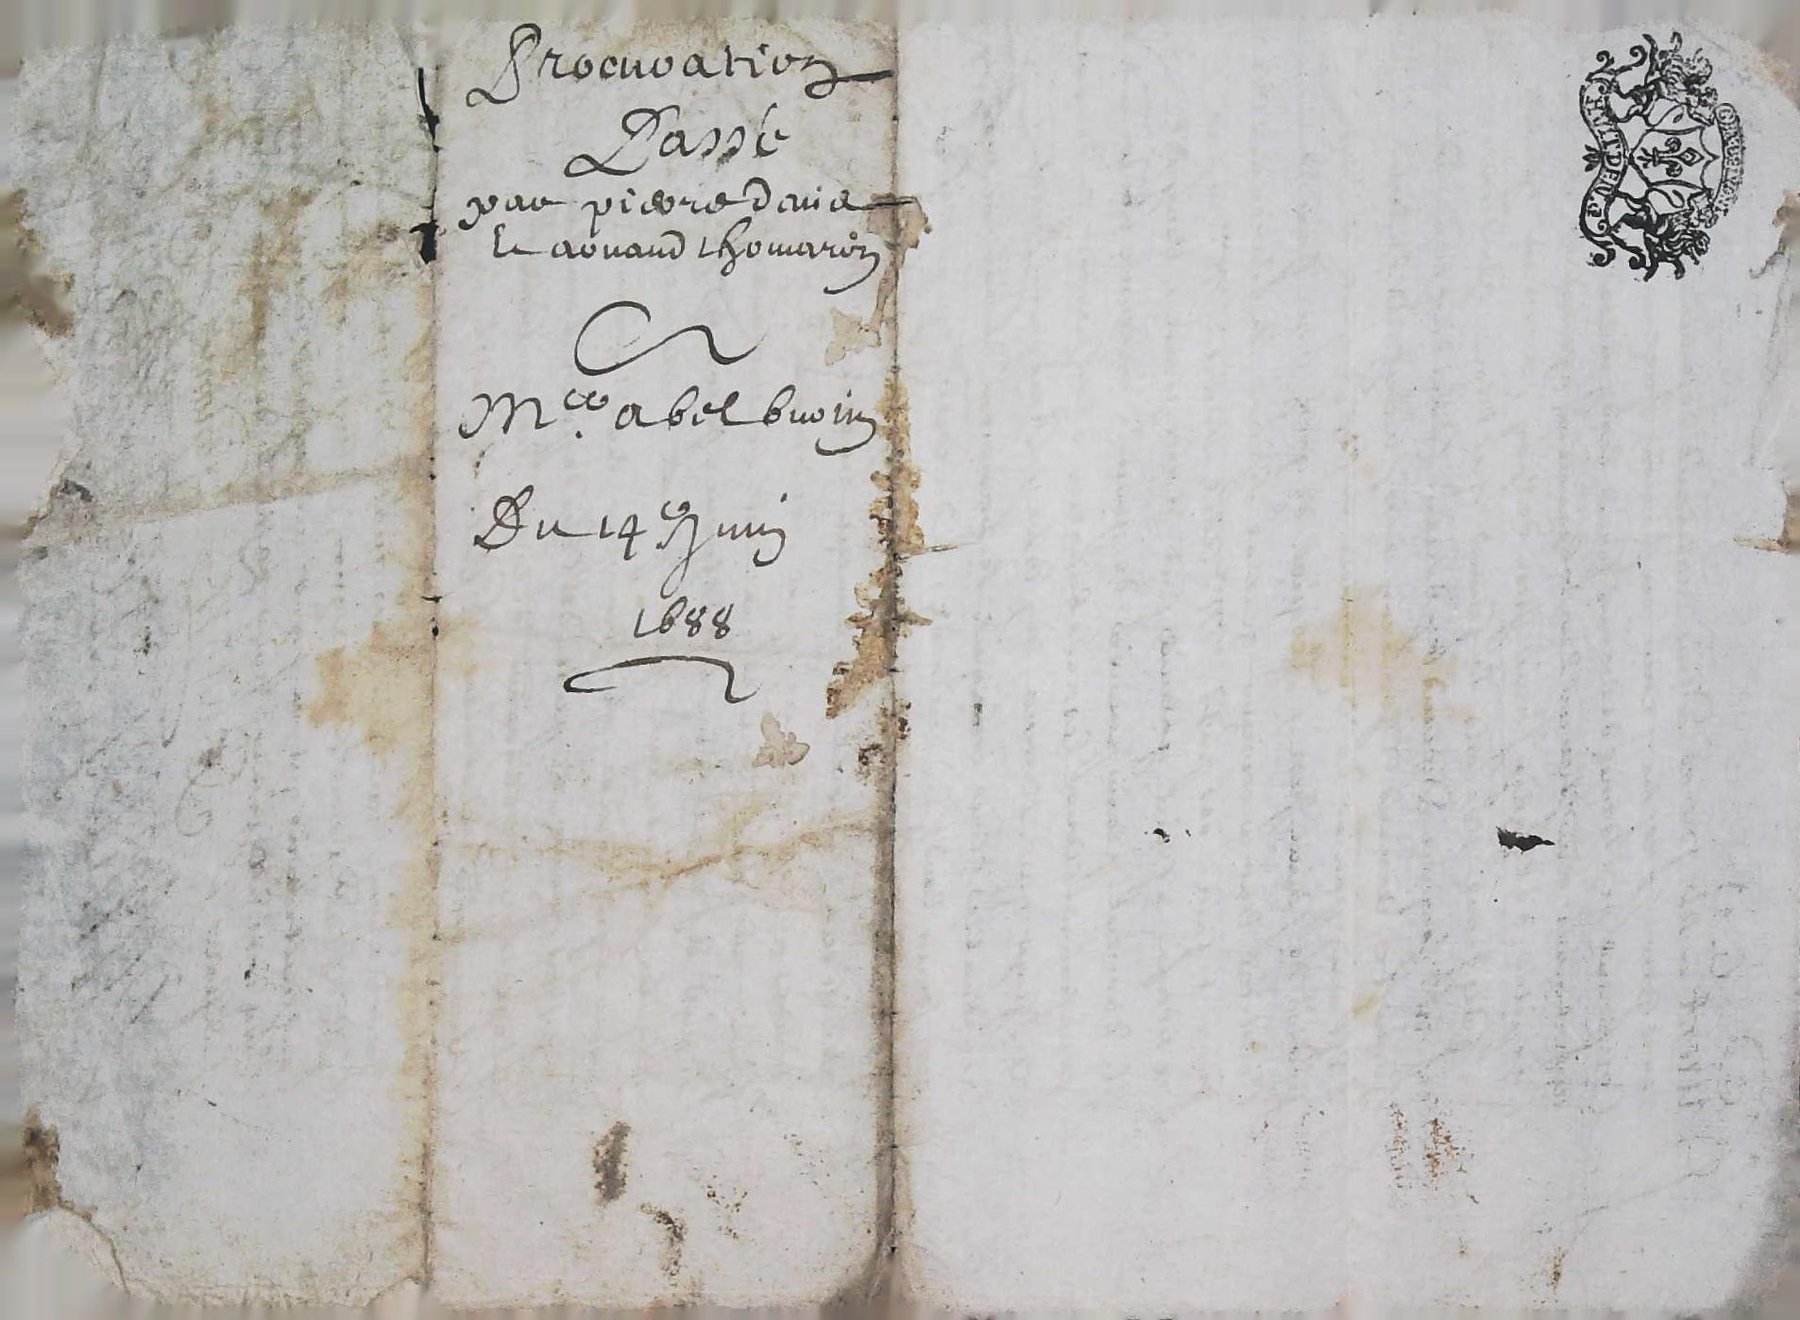 Procuration
Passé
par pierre Davia
et arnaud thomaron
Mre abel bruin
Du 14e Juin
1688